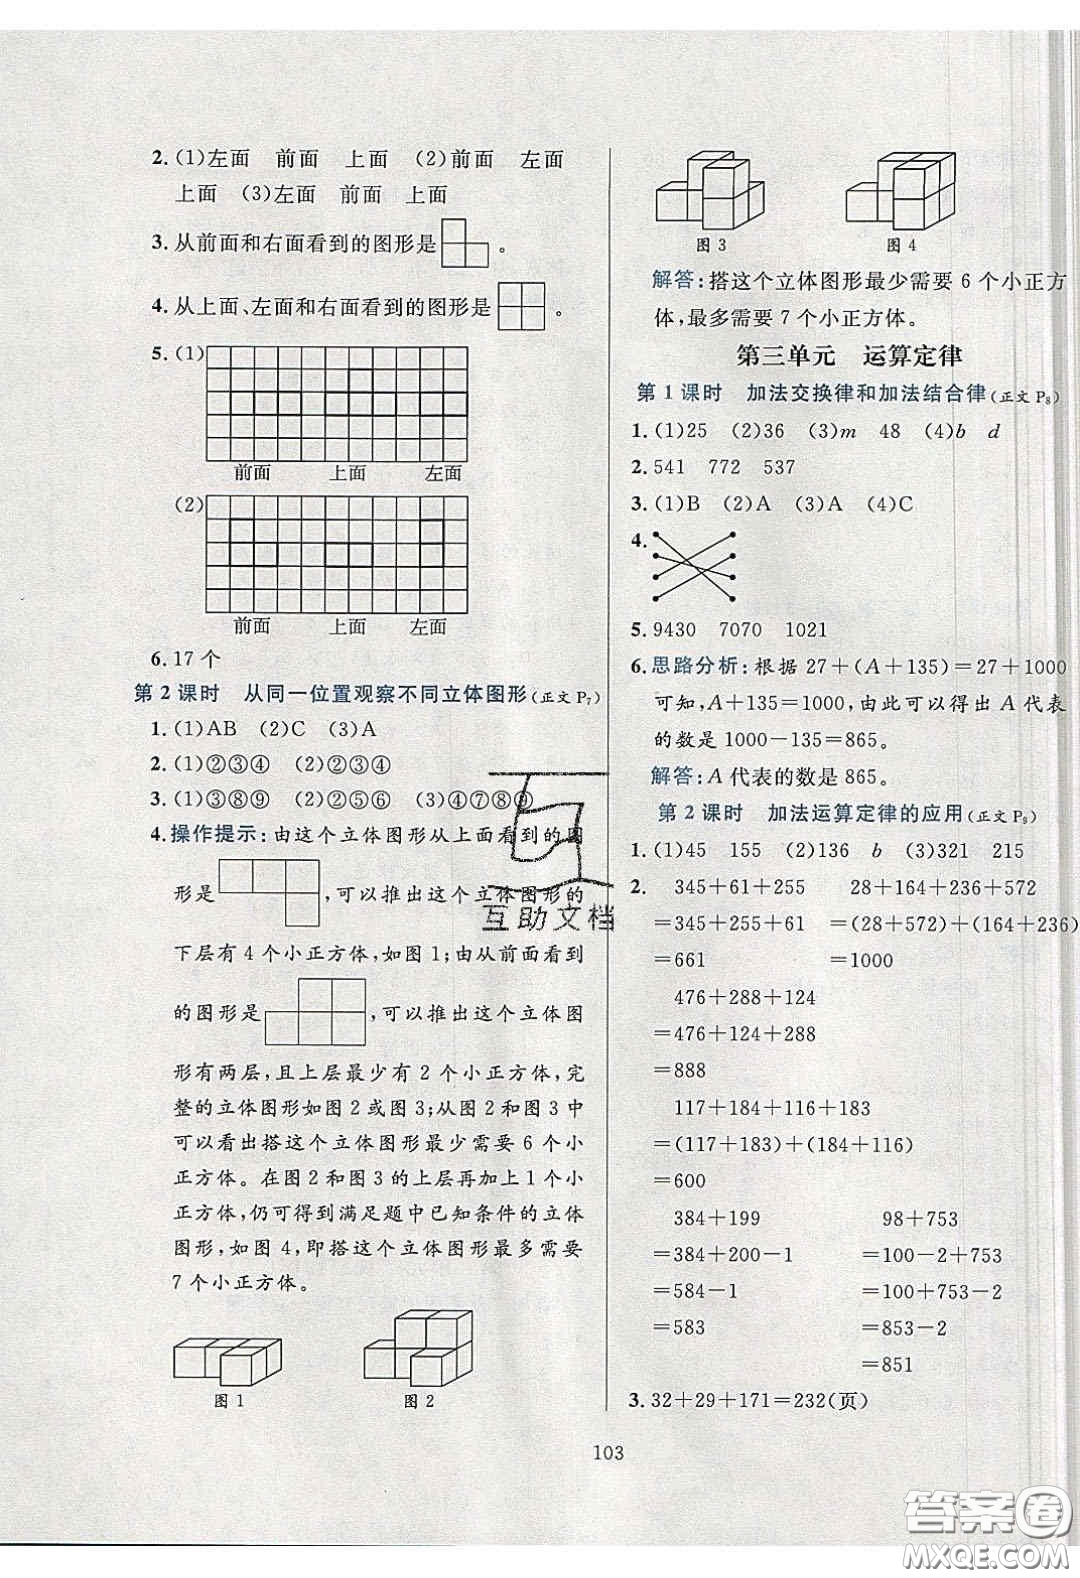 2. (1)左面 前面 上面 (2)前面 左面
上面 (3)左面 前面 上面
3. 从前面和右面看到的图形是 。
4. 从上面、左面和右面看到的图形是 。
5. (1)
前面 上面 左面
(2)
前面 上面 左面
6. 17个
第2课时 从同一位置观察不同立体图形(正文P7)
1. (1)AB (2)C (3)A
2. (1)②③④ (2)①②③④
3. (1)③⑧⑨ (2)②⑤⑥ (3)④⑦⑧⑨
4. 操作提示:由这个立体图形从上面看到的图
形是 ,可以推出这个立体图形的
下层有4个小正方体,如图1;由从前面看到
的图形是 ,可以推出这个立体图
形有两层,且上层最少有2个小正方体,完
整的立体图形如图2或图3;从图2和图3中
可以看出搭这个立体图形最少需要6个小
正方体。在图2和图3的上层再加上1个小
正方体,仍可得到满足题中已知条件的立体
图形,如图4,即搭这个立体图形最多需要
7个小正方体。
图1 图2
图3 图4
解答:搭这个立体图形最少需要6个小正方
体,最多需要7个小正方体。
第三单元 运算定律
第1课时 加法交换律和加法结合律(正文P8)
1. (1)25 (2)36 (3)m 48 (4)b d
2. 541 772 537
3. (1)B (2)A (3)A (4)C
4.
5. 9430 7070 1021
6. 思路分析:根据27+(A+135)=27+1000
可知,A+135=1000,由此可以得出A代表
的数是1000-135=865。
解答:A代表的数是865。
第2课时 加法运算定律的应用(正文P9)
1. (1)45 155 (2)136 b (3)321 215
2. 345+61+255 28+164+236+572
=345+255+61 =(28+572)+(164+236)
=661 =1000
476+288+124
=476+124+288
=888
117+184+116+183
=(117+183)+(184+116)
=600
384+199 98+753
=384+200-1 =100-2+753
=584-1 =100+753-2
=583 =853-2
=851
3. 32+29+171=232(页)
103
互助文档
答案圈
MXQE.COM